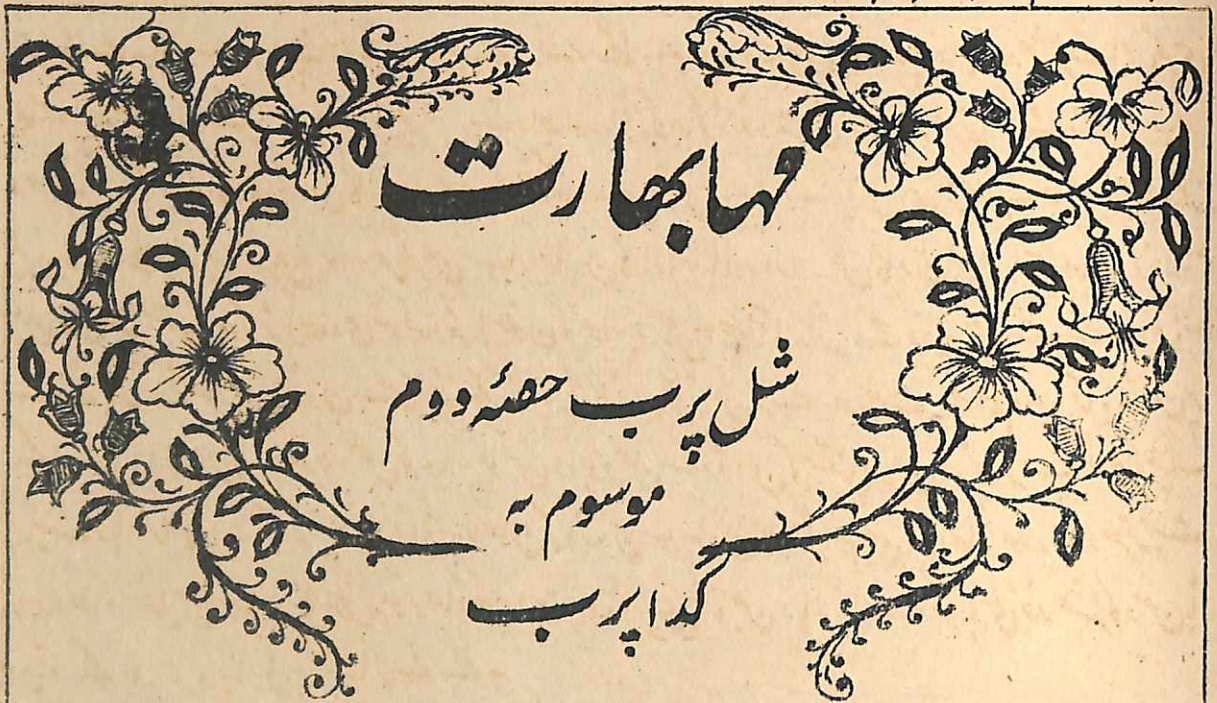 مہابھارت
شل پرب حصۂ دوم
موسوم بہ
گدا پرب